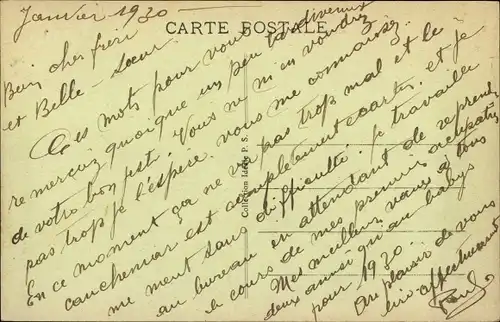 Janvier 1930
CARTE POSTALE
Bien cher frère
et Belle-Sœur
Ces mots pour vous
remerciez quoique un peu tardivement
de votre bon Vous ne m'en voudrez
pas trop je l'espère. vous me connaissez.
En ce moment ça ne va pas trop mal et le
cauchemar est complètement écarté. et je
me ment sans difficulté. je travaille
au bureau en attendant de reprendre
le cours de mes premiers occupations
Mes meilleurs vœux à tous
deux ainsi qu'au babys
pour 1930.
Au plaisir de vous
lire affectueusement
Paul
Collection Idéale P. S.